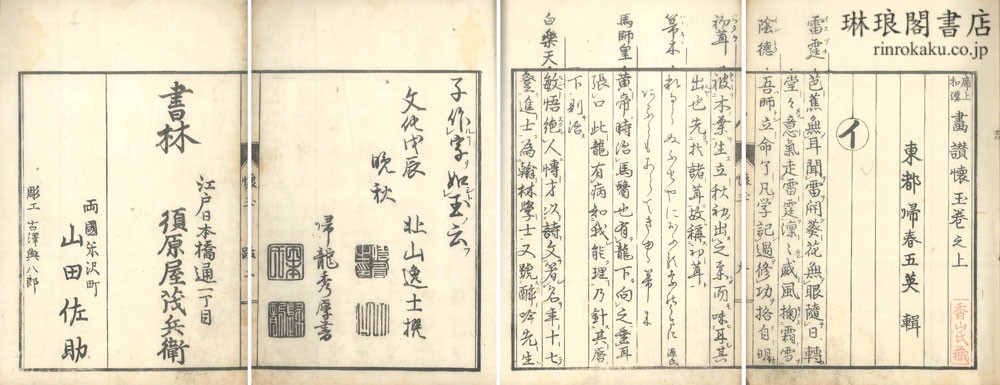 琳琅閣書店
rinrokaku.co.jp
席上和漢 畫讃懷玉卷之上
東都 歸春五英 輯
香山氏藏
イ
雷霆 芭蕉無耳聞雷開葵花無眼隨日轉
堂々意氣走雷霆凛々威風掬霜雪
陰德 吾師立命了凡学記過修功格自明
初茸 被木葉生立秋初出之 而味耳其
出也先於諸茸故稱初茸
馬師皇 黄帝時治馬醫也有龍下向之垂耳
張口此龍有病如我能理乃針其唇
下則治
白樂天 敏悟絶人博才以詩文著名年十七
登進士為翰林學士又號醉吟先生
子作字如玉云
文化戊辰
晩秋 北山逸士撰
秀厚書
書林
江戸日本橋通一丁目
須原屋茂兵衛
両國米沢町
山田佐助
彫工 古澤與八郎